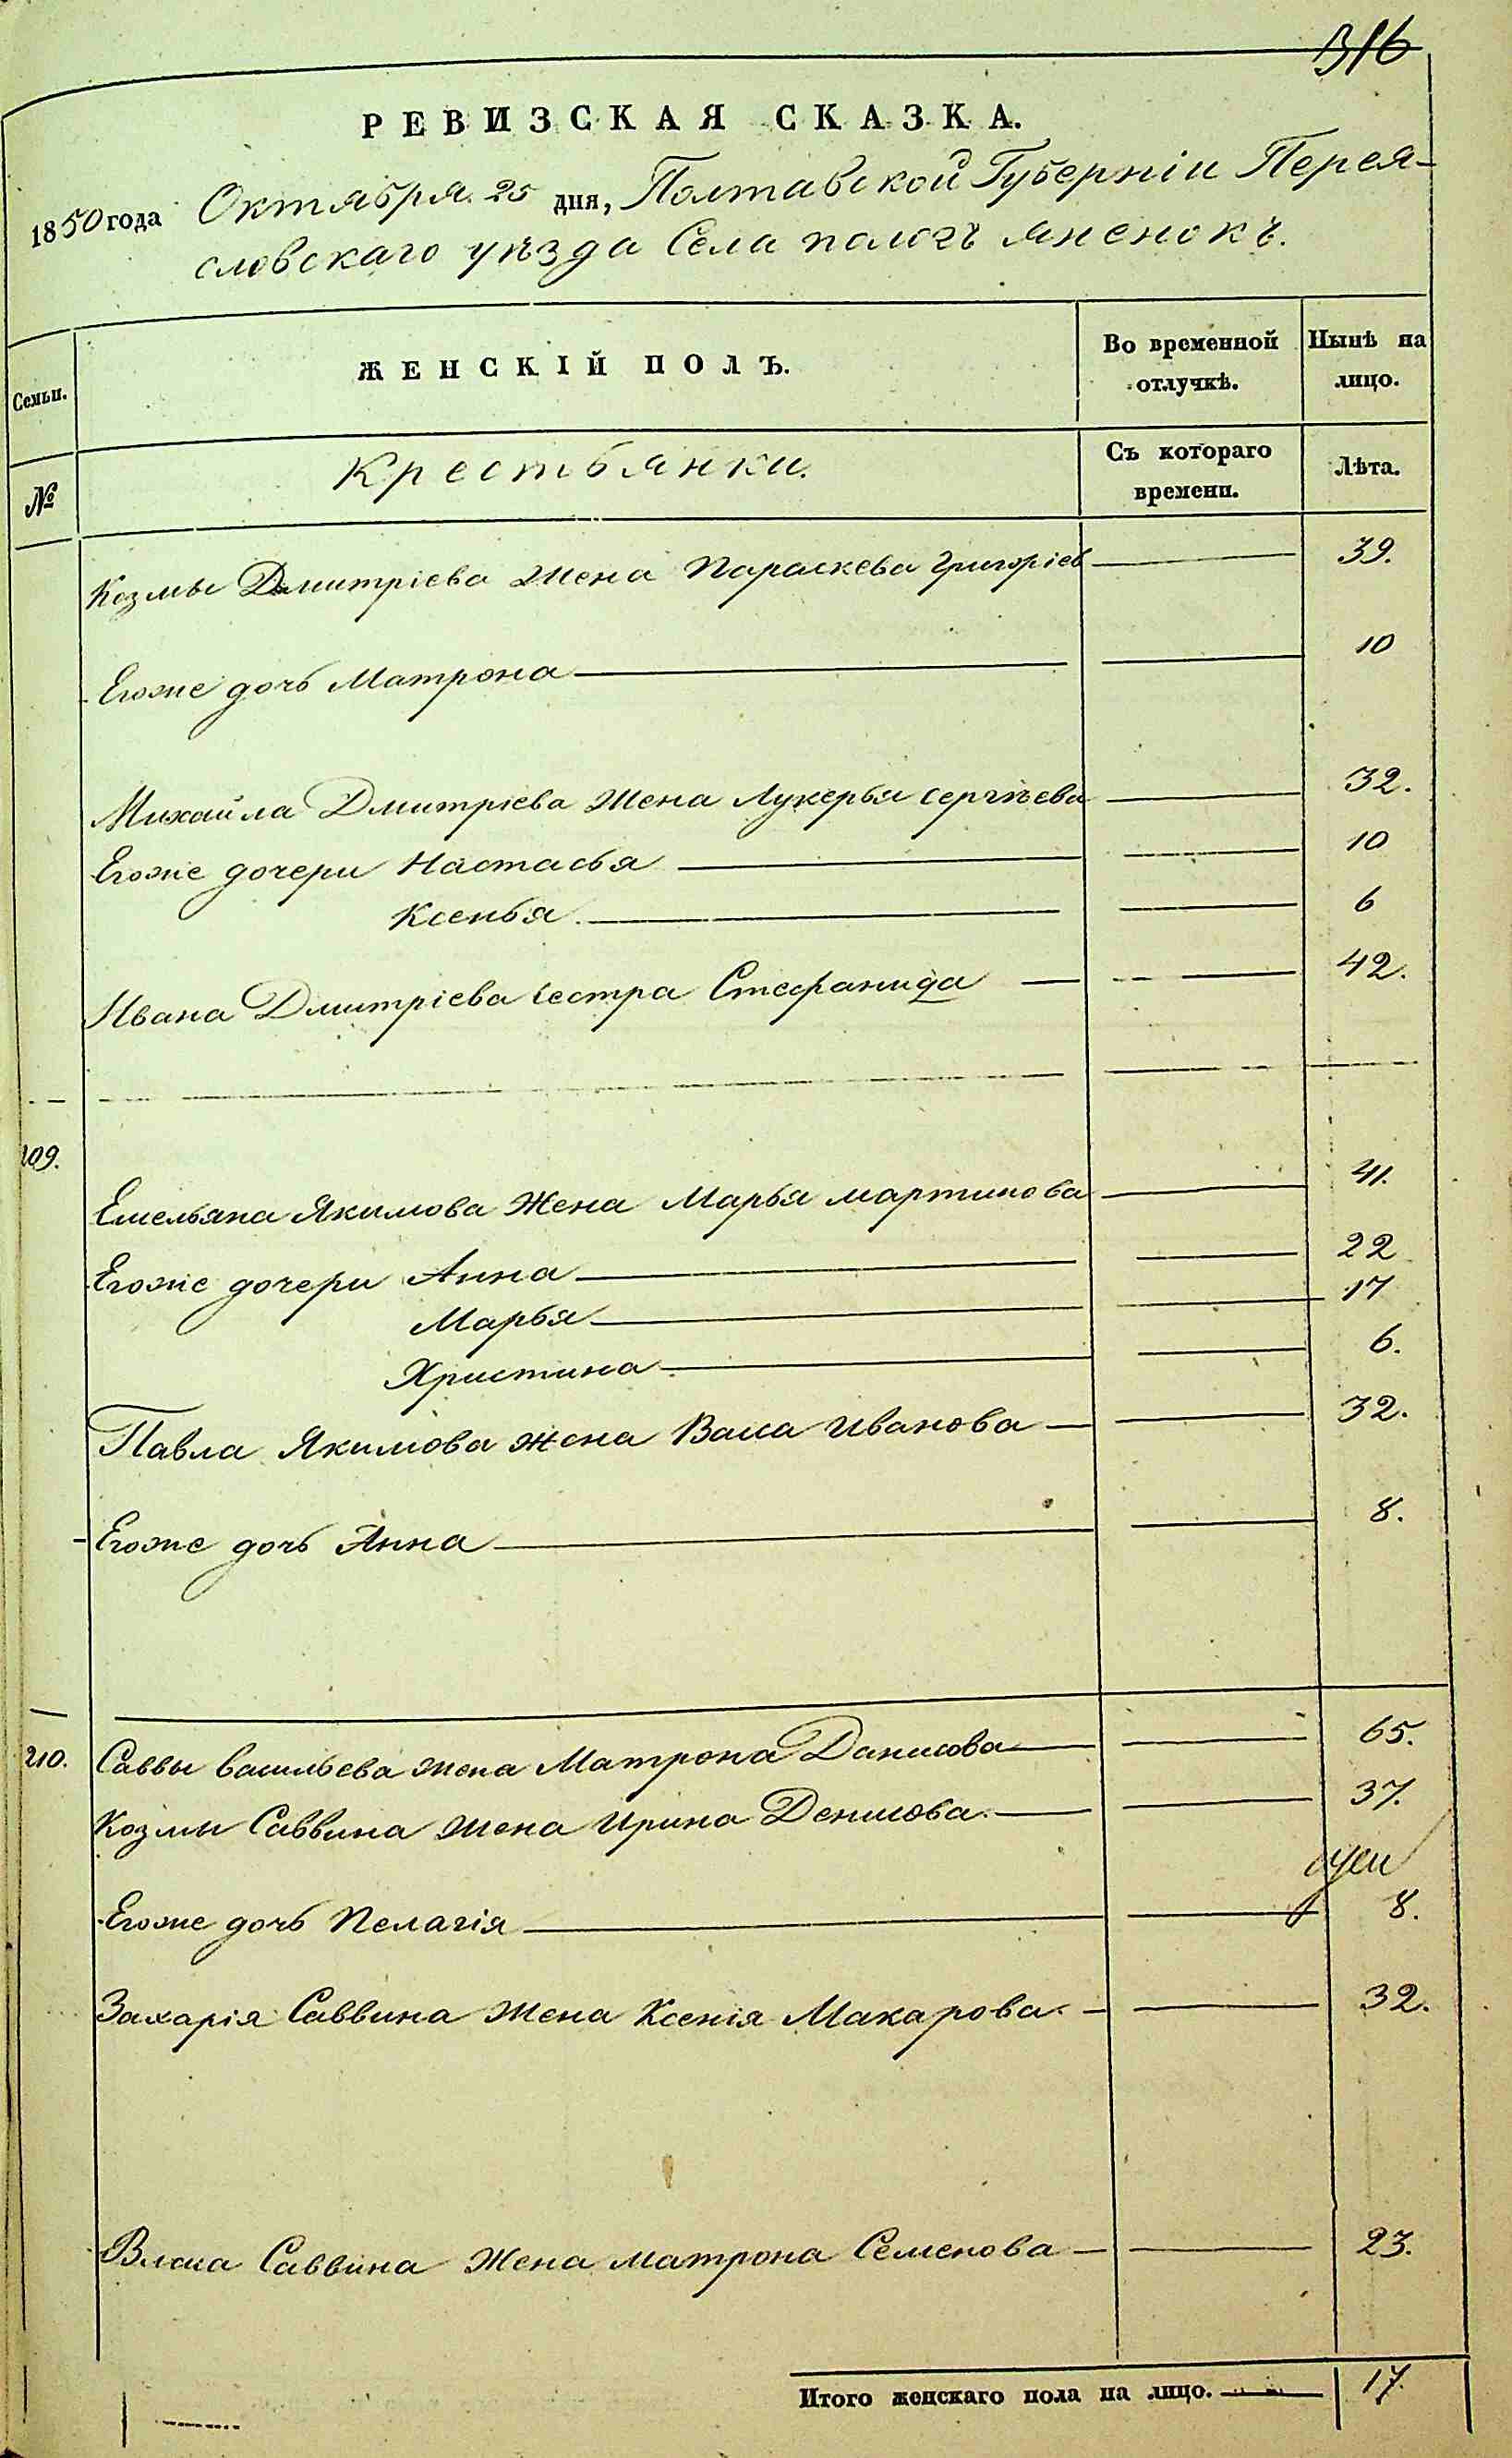 316
РЕВИЗСКАЯ СКАЗКА.
1850 года Октября 25 дня, Полтавской Губерніи Перея-
словскаго уѣзда Села пологъ яненокъ.
Семьи. ЖЕНСКІЙ ПОЛЪ. Во временной отлучкѣ. Нынѣ на лицо.
№ Крестьянки. Съ котораго времени. Лѣта.
Козмы Дмитріева жена Параскева Григоріев 39.
Егоже дочь Матрона 10
Михайла Дмитріева жена Лукерья Сергѣева 32.
Егоже дочери Настасья 10
Ксенья 6
Ивана Дмитріева сестра Стефанида 42.
209.
Емельяна Якимова жена Марья мартинова 41.
Егоже дочери Анна 22
Марья 17
Христина 6.
Павла Якимова жена Васса Иванова 32.
Егоже дочь Анна 8.
210. Саввы васильева жена Матрона Данилова 65.
Козмы Саввина жена Ирина Денисова 37.
Егоже дочь Пелагія 8.
Захарія Саввина жена Ксенія Макарова 32.
Власа Саввина жена матрона Семенова 23.
Итого женскаго пола на лицо. 17.